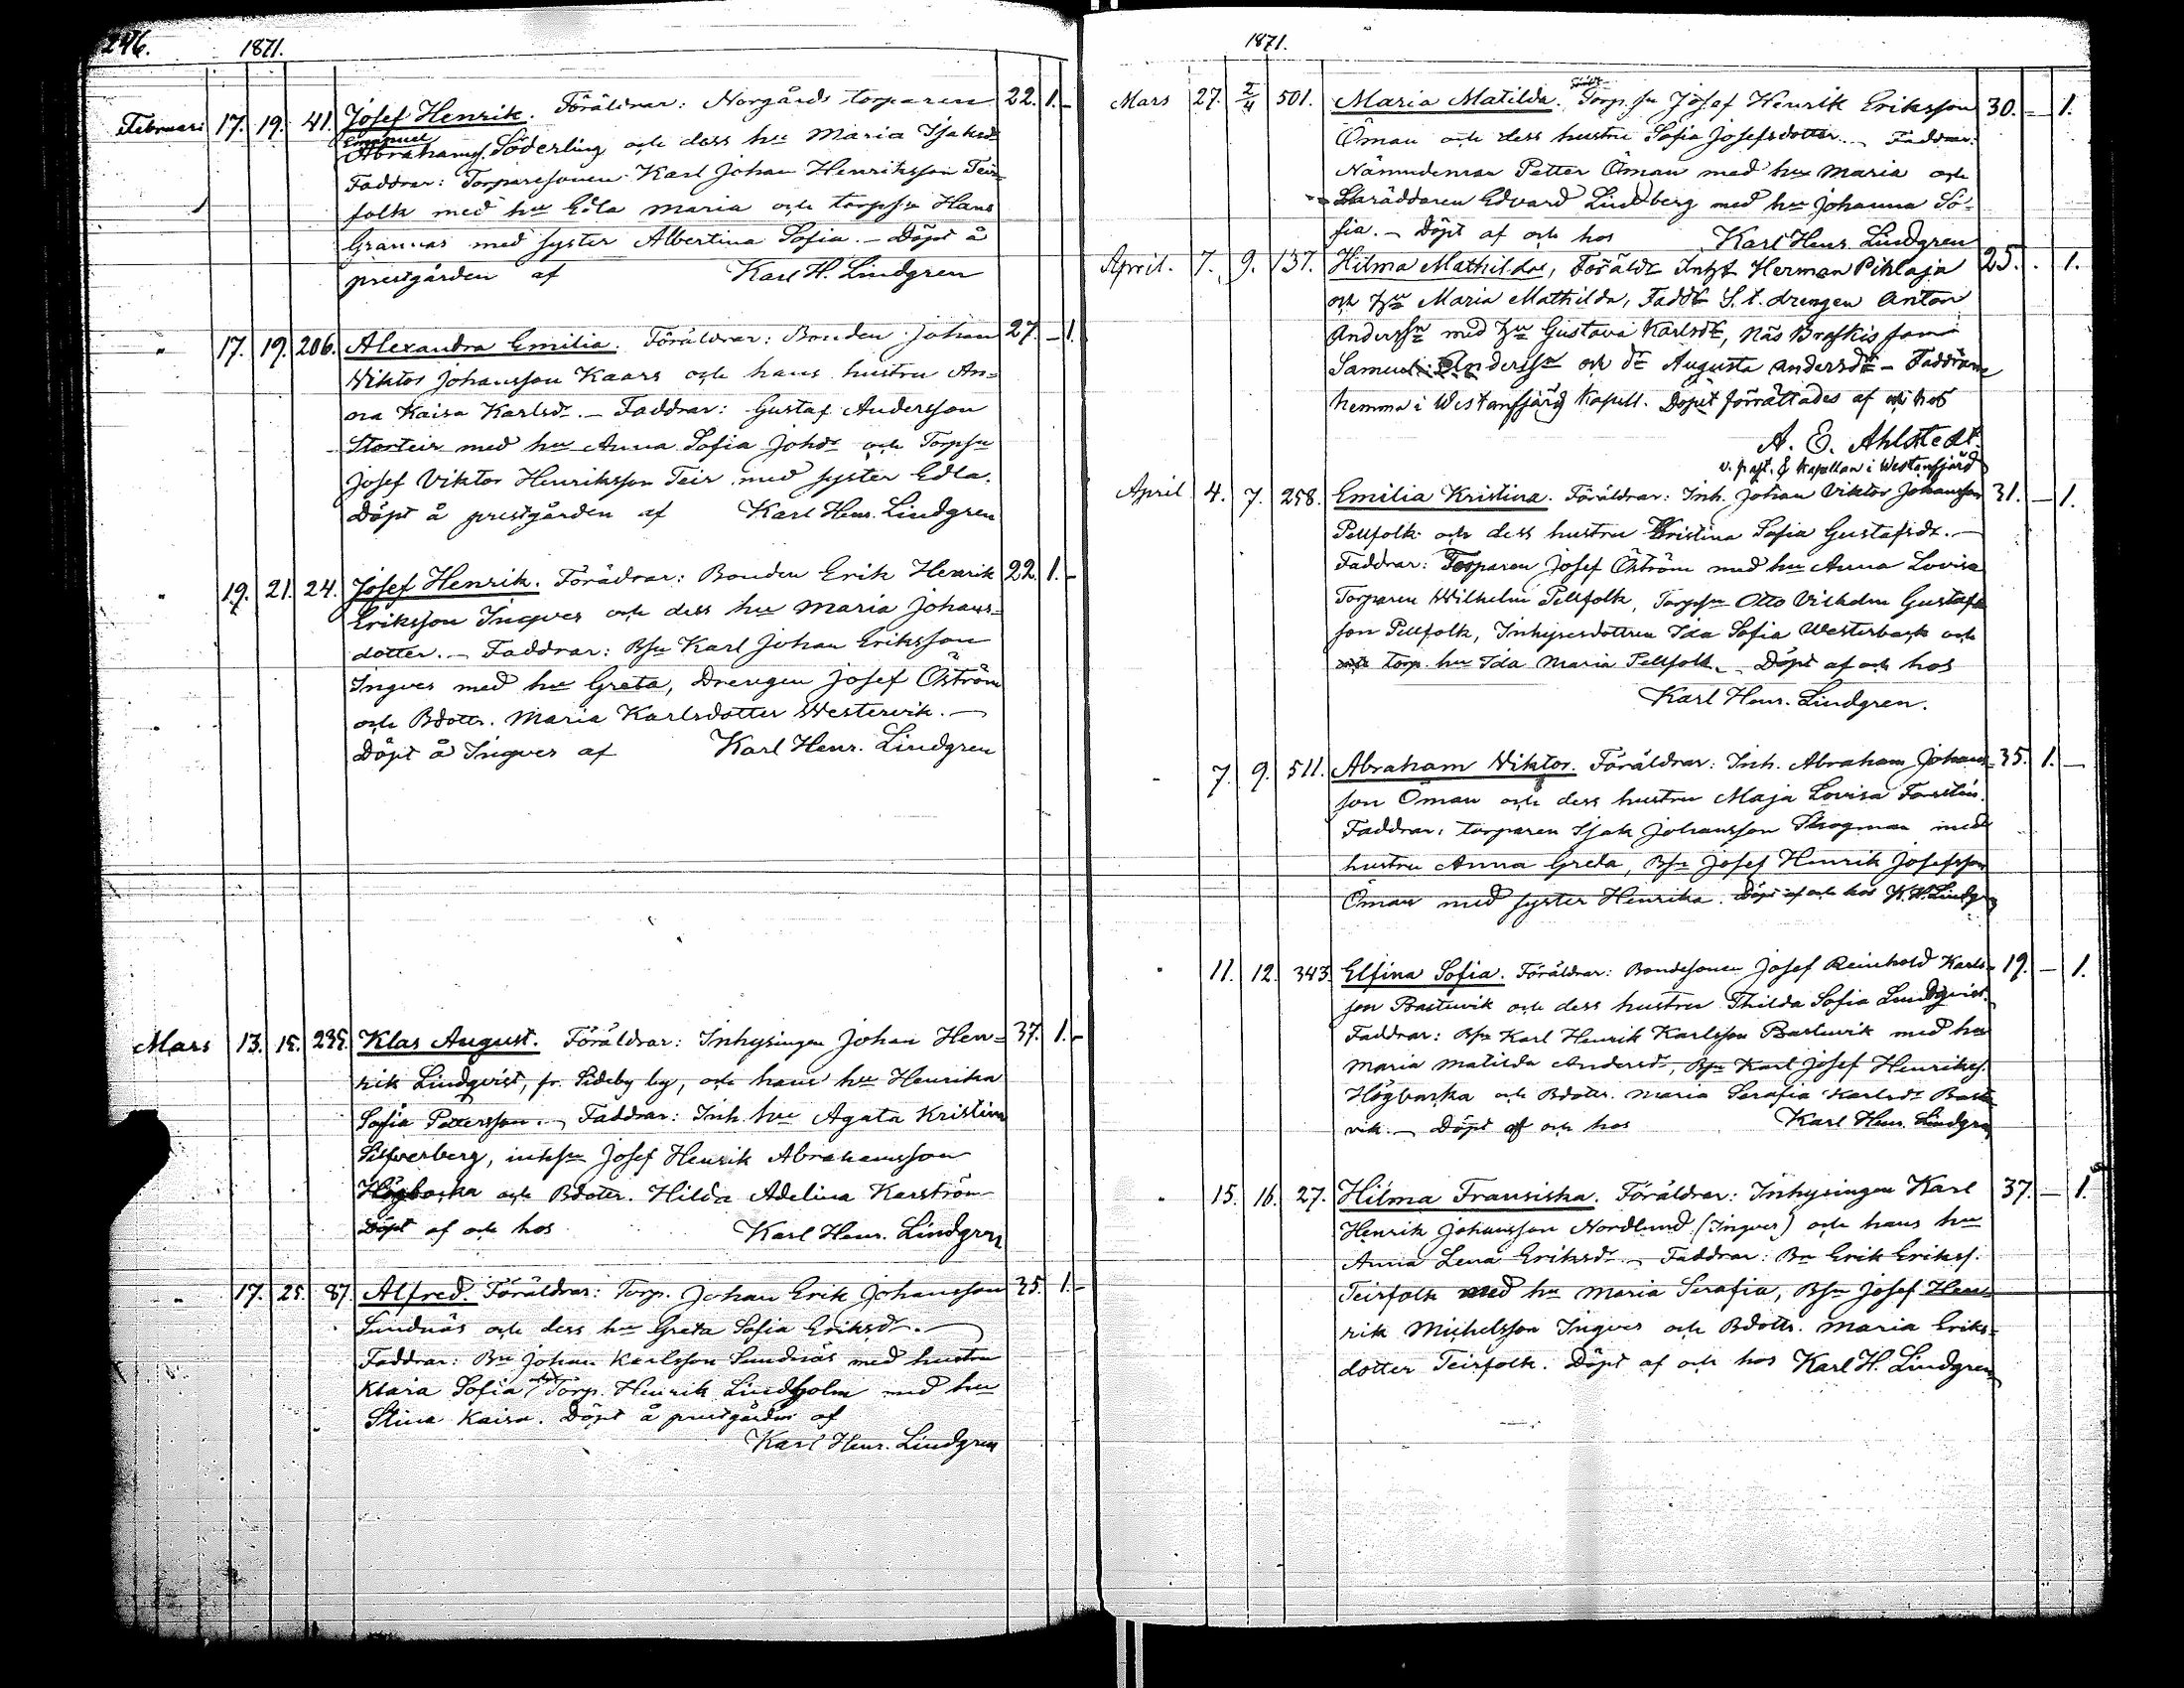 246.
1871.
Februari 17. 19. 41. Josef Henrik. Föräldrar: Norgårds torparen 22. 1. -
Emanuel
Abrahams. Söderling och dess hu Maria Isaksdr
Faddrar: Torparesonen Karl Johan Henriksson Teir-
folk med hu Edla Maria och torpsn Hans
Grannas med syster Albertina Sofia. - Döpt å
prestgården af Karl H. Lindgren
" 17. 19. 206. Alexandra Emilia. Föräldrar: Bonden Johan 27. - 1.
Viktor Johansson Kaars och hans hustru An-
na Kaisa Karlsdr. - Faddrar: Gustaf Andersson
Storteir med hu Anna Sofia Johdr och Torpsn
Josef Viktor Henriksson Teir med syster Edla.
Döpt å prestgården af Karl Henr. Lindgren
" 19. 21. 24. Josef Henrik. Förädrar: Bonden Erik Henrik 22. 1. -
Eriksson Ingves och dess hu Maria Johans-
dotter. - Faddrar: Bsn Karl Johan Eriksson
Ingves med hu Greta, Drengen Josef Öström
och Bdottr. Maria Karlsdotter Westervik. -
Döpt å Ingves af Karl Henr. Lindgren
Mars 13. 15. 235. Klas August. Föräldrar: Inhysingen Johan Hen- 37. 1. -
rik Lindqvist, fr. Sideby by, och hans hu Henrika
Sofia Pettersson. - Faddrar: Inh. hu Agata Kristina
Silfverberg, inhsn Josef Henrik Abrahamsson
Högbacka och Bdoter. Hilda Adelina Karström
Döpt af och hos Karl Henr. Lindgren
" 17. 25. 87. Alfred. Föräldrar: Torp. Johan Erik Johansson 35. 1. -
Sundnäs och dess hu Greta Sofia Eriksdr. -
Faddrar: Bn Johan Karlsson Sundnäs med hustru
Klara Sofia, och Torp. Henrik Lindholm med hu
Stina Kaisa. Döpt å prestgården af
Karl Henr. Lindgren
1871.
Mars 27. 2/4 501. Maria Matilda. Torp. sn Josef Henrik Eriksson 30. - 1.
Öman och dess hustru Sofia Josefsdotter. - Faddrar:
Nämndeman Petter Öman med hu Maria och
Edvard Lindberg med hu Johanna So-
fia. - Döpt af och hos Karl Henr. Lindgren
April. 7. 9. 137. Hilma Mathilda, Föräldr Herman Pihlaja 25. . 1.
och hu Maria Mathilda, Faddr S. t. drengen Anton
Anderssn med hu Gustava Karlsdr, Näs
Samuel Anderssn och Augusta Andersdr - Faddrarne
hemma i Westanfjärd Kapell. Döpet förrättades af och hos
A. E. Ahlstedt.
v. past. & Kapellan i Westanfjärd
April 4. 7. 258. Emilia Kristina. Föräldrar: Inh. Johan Viktor Johansson 31. - 1.
Pellfolk och dess hustru Kristina Sofia Gustafsdr. -
Faddrar: Torparen Josef Öström med hu Anna Lovisa
Torparen Wilhelm Pellfolk, Torpsn Otto Vilhelm Gustafs-
son Pellfolk, Inhysesdottren Ida Sofia Westerback och
Torp. hu Ida Maria Pellfolk. - Döpt af och hos
Karl Henr. Lindgren.
" 7. 9. 511. Abraham Viktor. Föräldrar: Inh. Abraham Johans- 35. 1. -
son Öman och dess hustru Maja Lovisa
Faddrar: torparen Isak Johansson Skogman med
hustru Anna Greta, Bsn Josef Henrik Josefsson
Öman med syster Henrika. Döpt af och hos K. H. Lindgren
" 11. 12. 343. Elfina Sofia. Föräldrar: Bondesonen Josef Reinhold Karls- 19. - 1.
son Bastuvik och dess hustru Thilda Sofia Lundqvist.
Faddrar: Bsn Karl Henrik Karlsson Bastuvik med hu
Maria Matilda Andersdr, Bsn Karl Josef Henrikss.
Högbacka och Bdottr. Maria Serafia Karlsdr Bastu-
vik. - Döpt af och hos Karl Henr. Lindgren
" 15. 16. 27. Hilma Fransiska. Föräldrar: Inhysingen Karl 37. - 1.
Henrik Johansson Nordlund (Ingves) och hans hu
Anna Lena Eriksdr. - Faddrar: Bn Erik Erikss.
Teirfolk med hu Maria Serafia, Bsn Josef Hen-
rik Michelsson Ingves och Bdottr. Maria Eriks-
dotter Teirfolk. Döpt af och hos Karl H. Lindgren